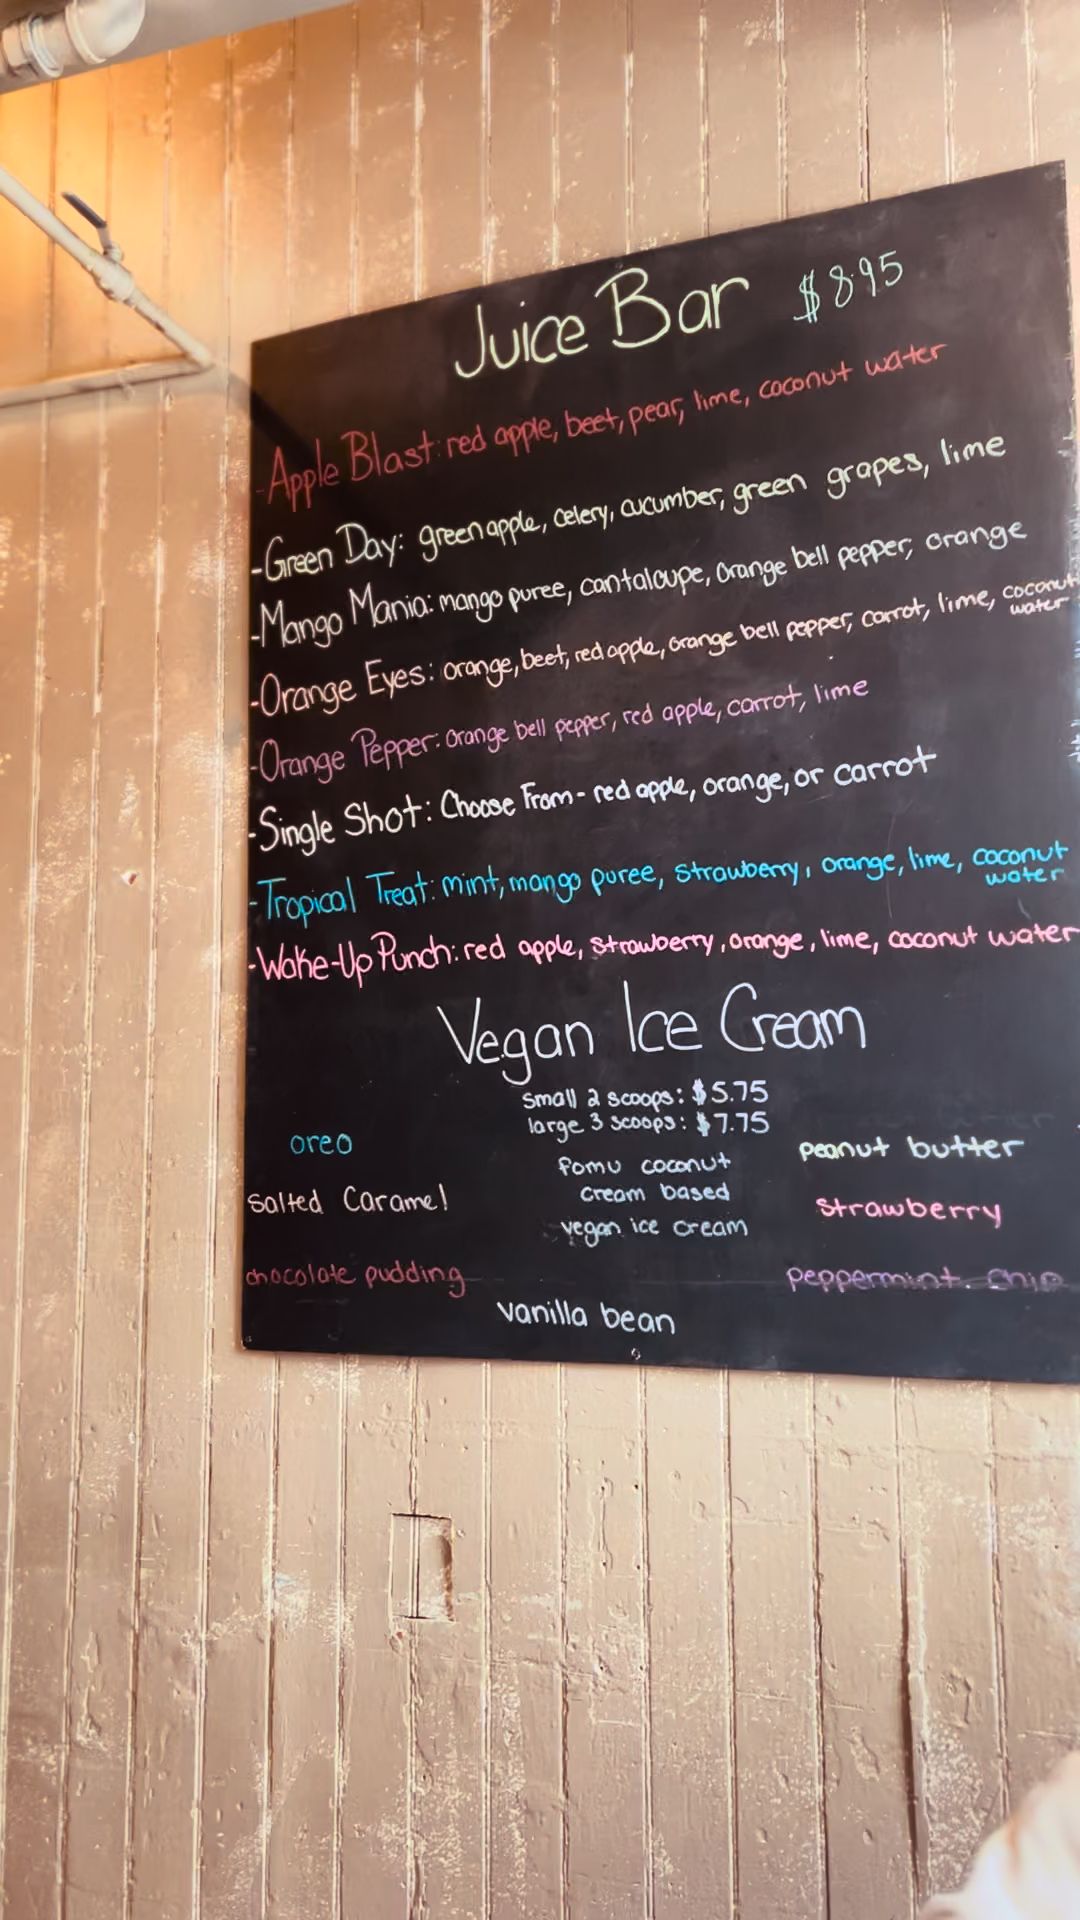 Juice Bar $8.95
-Apple Blast: red apple, beet, pear, lime, coconut water
-Green Day: green apple, celery, cucumber, green grapes, lime
-Mango Mania: mango puree, cantaloupe, orange bell pepper, orange
-Orange Eyes: orange, beet, red apple, orange bell pepper, carrot, lime, coconut
water
-Orange Pepper: orange bell pepper, red apple, carrot, lime
-Single Shot: Choose From - red apple, orange, or carrot
-Tropical Treat: mint, mango puree, strawberry, orange, lime, coconut
water
-Wake-Up Punch: red apple, strawberry, orange, lime, coconut water
Vegan Ice Cream
small 2 scoops: $5.75
large 3 scoops: $7.75
oreo
peanut butter
fomu coconut
cream based
vegan ice cream
Salted Caramel
strawberry
chocolate pudding
peppermint chip
vanilla bean